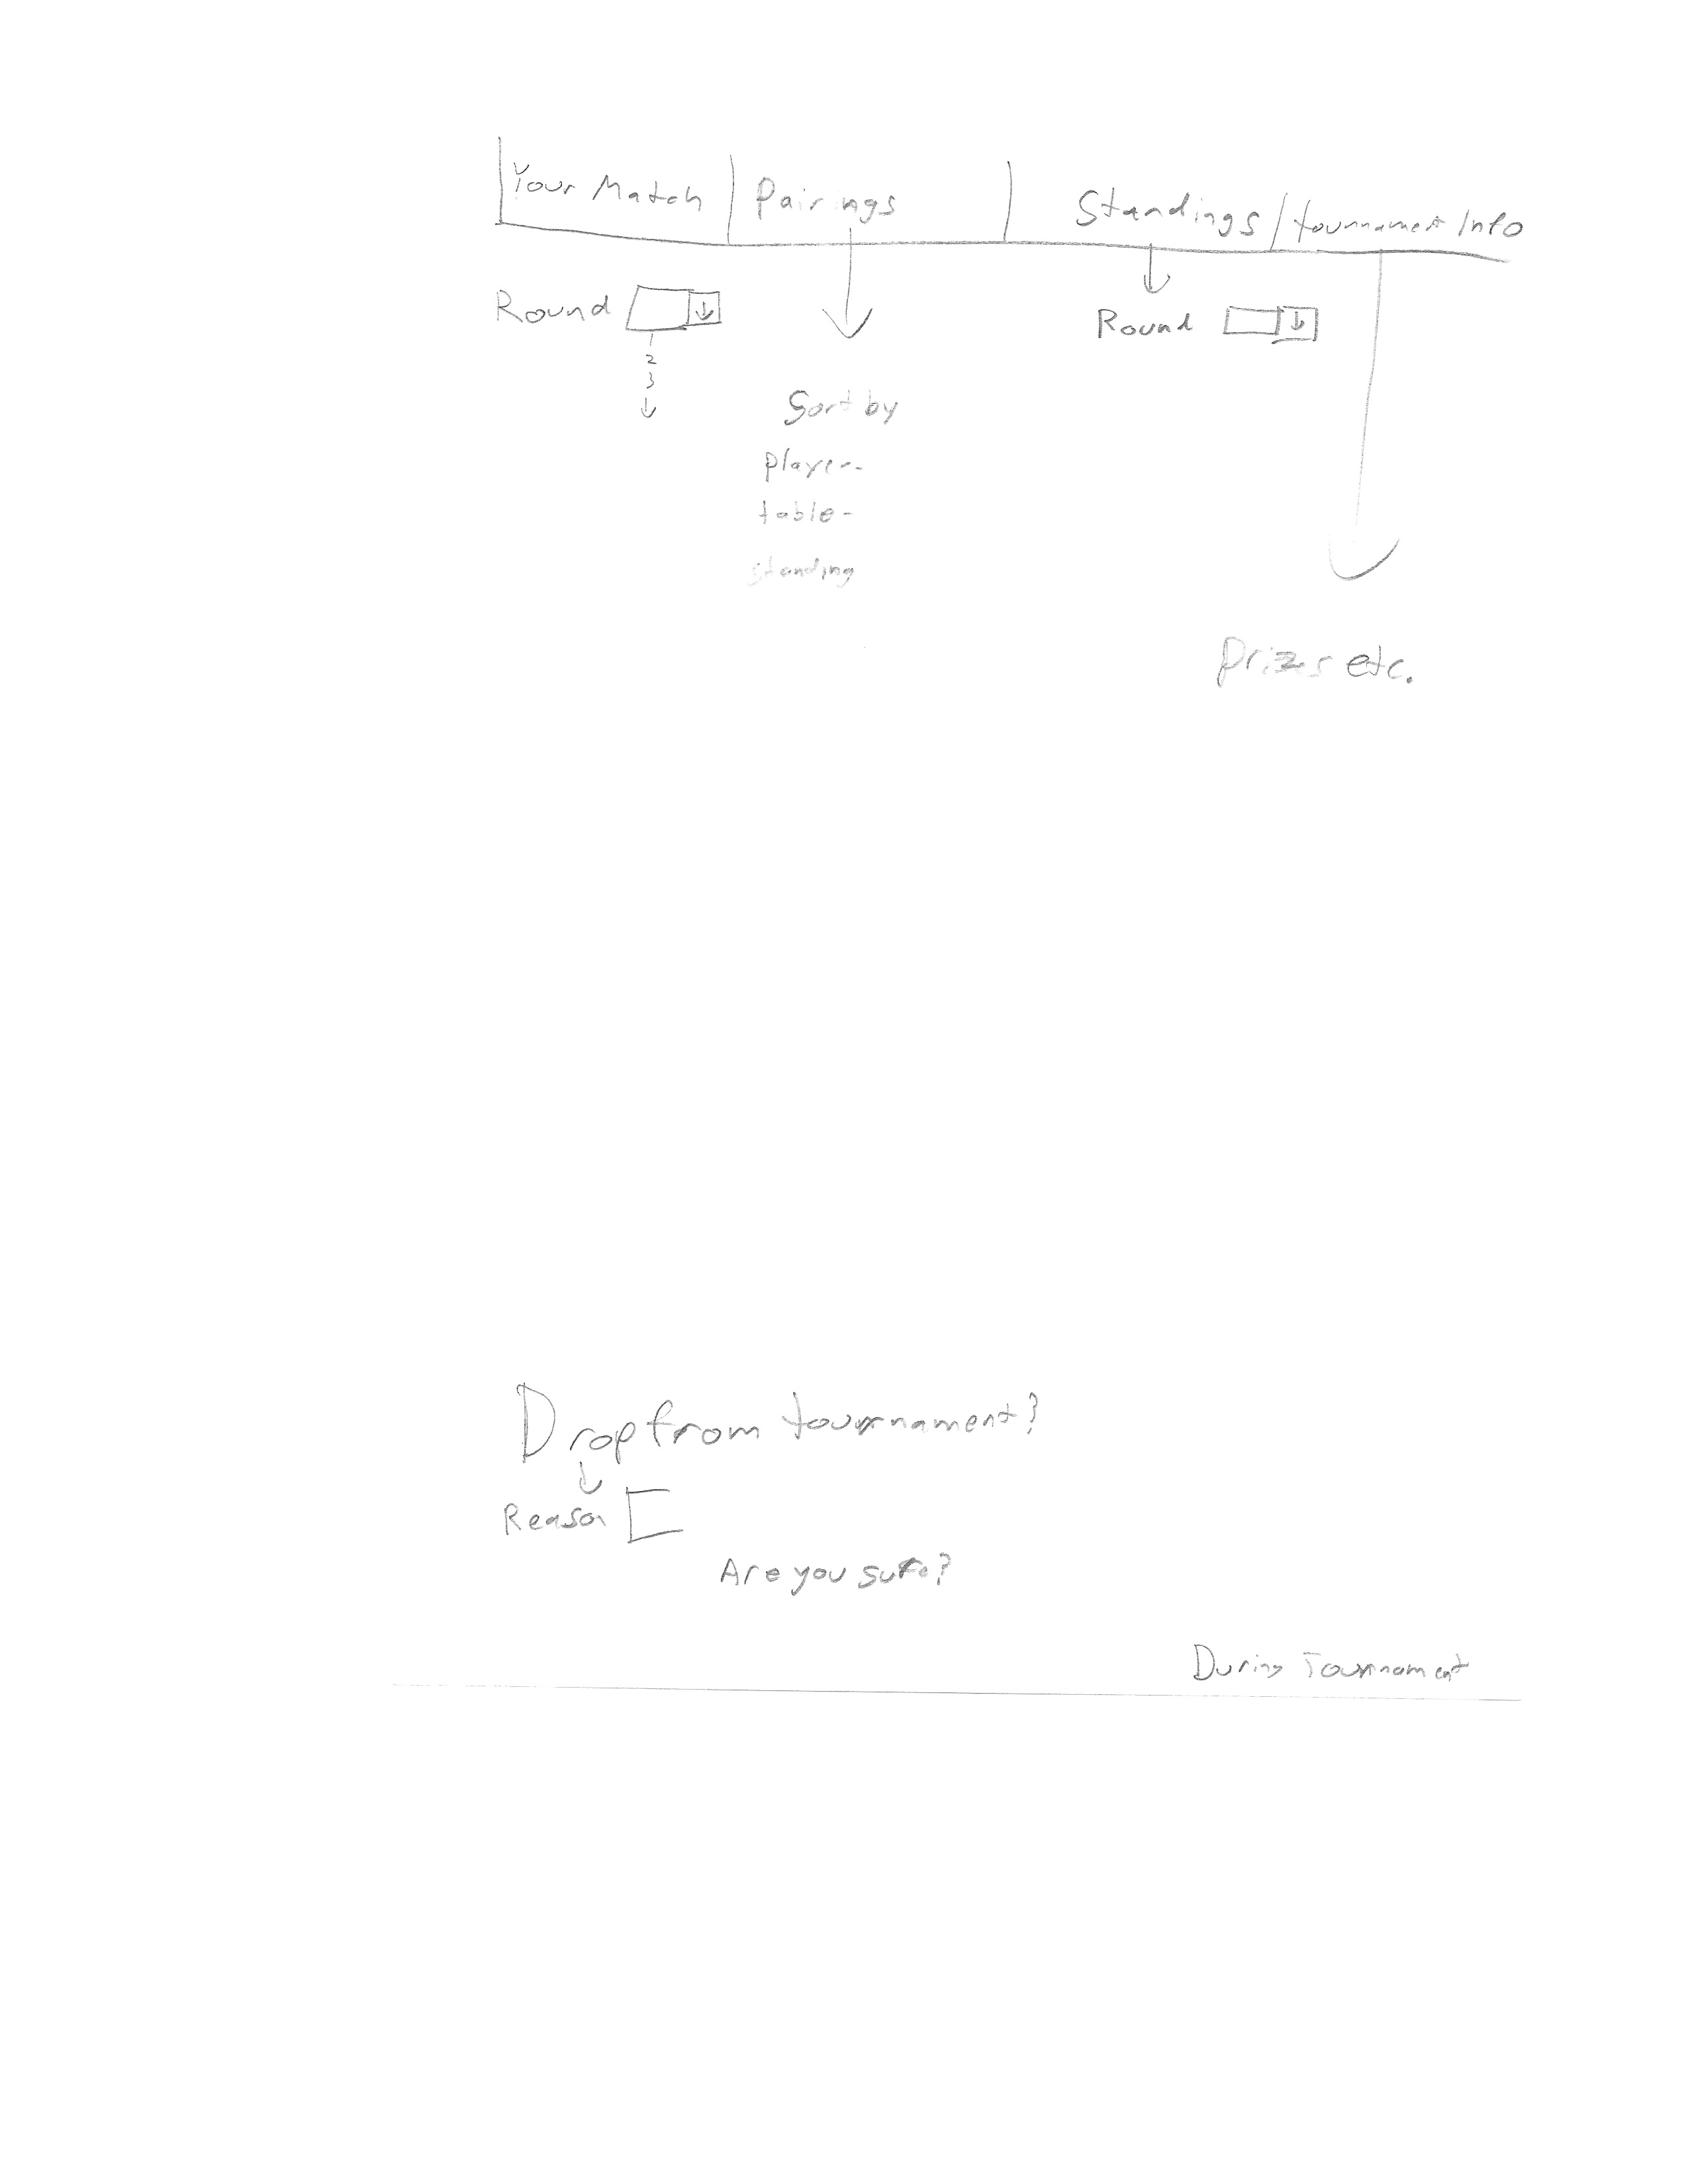 Your Match Pairings Standings tournament Info
Round
1
2
3
Sort by
player-
table-
standing
Round
prizes etc.
Drop from tournament?
Reason
Are you sure?
During Tournament